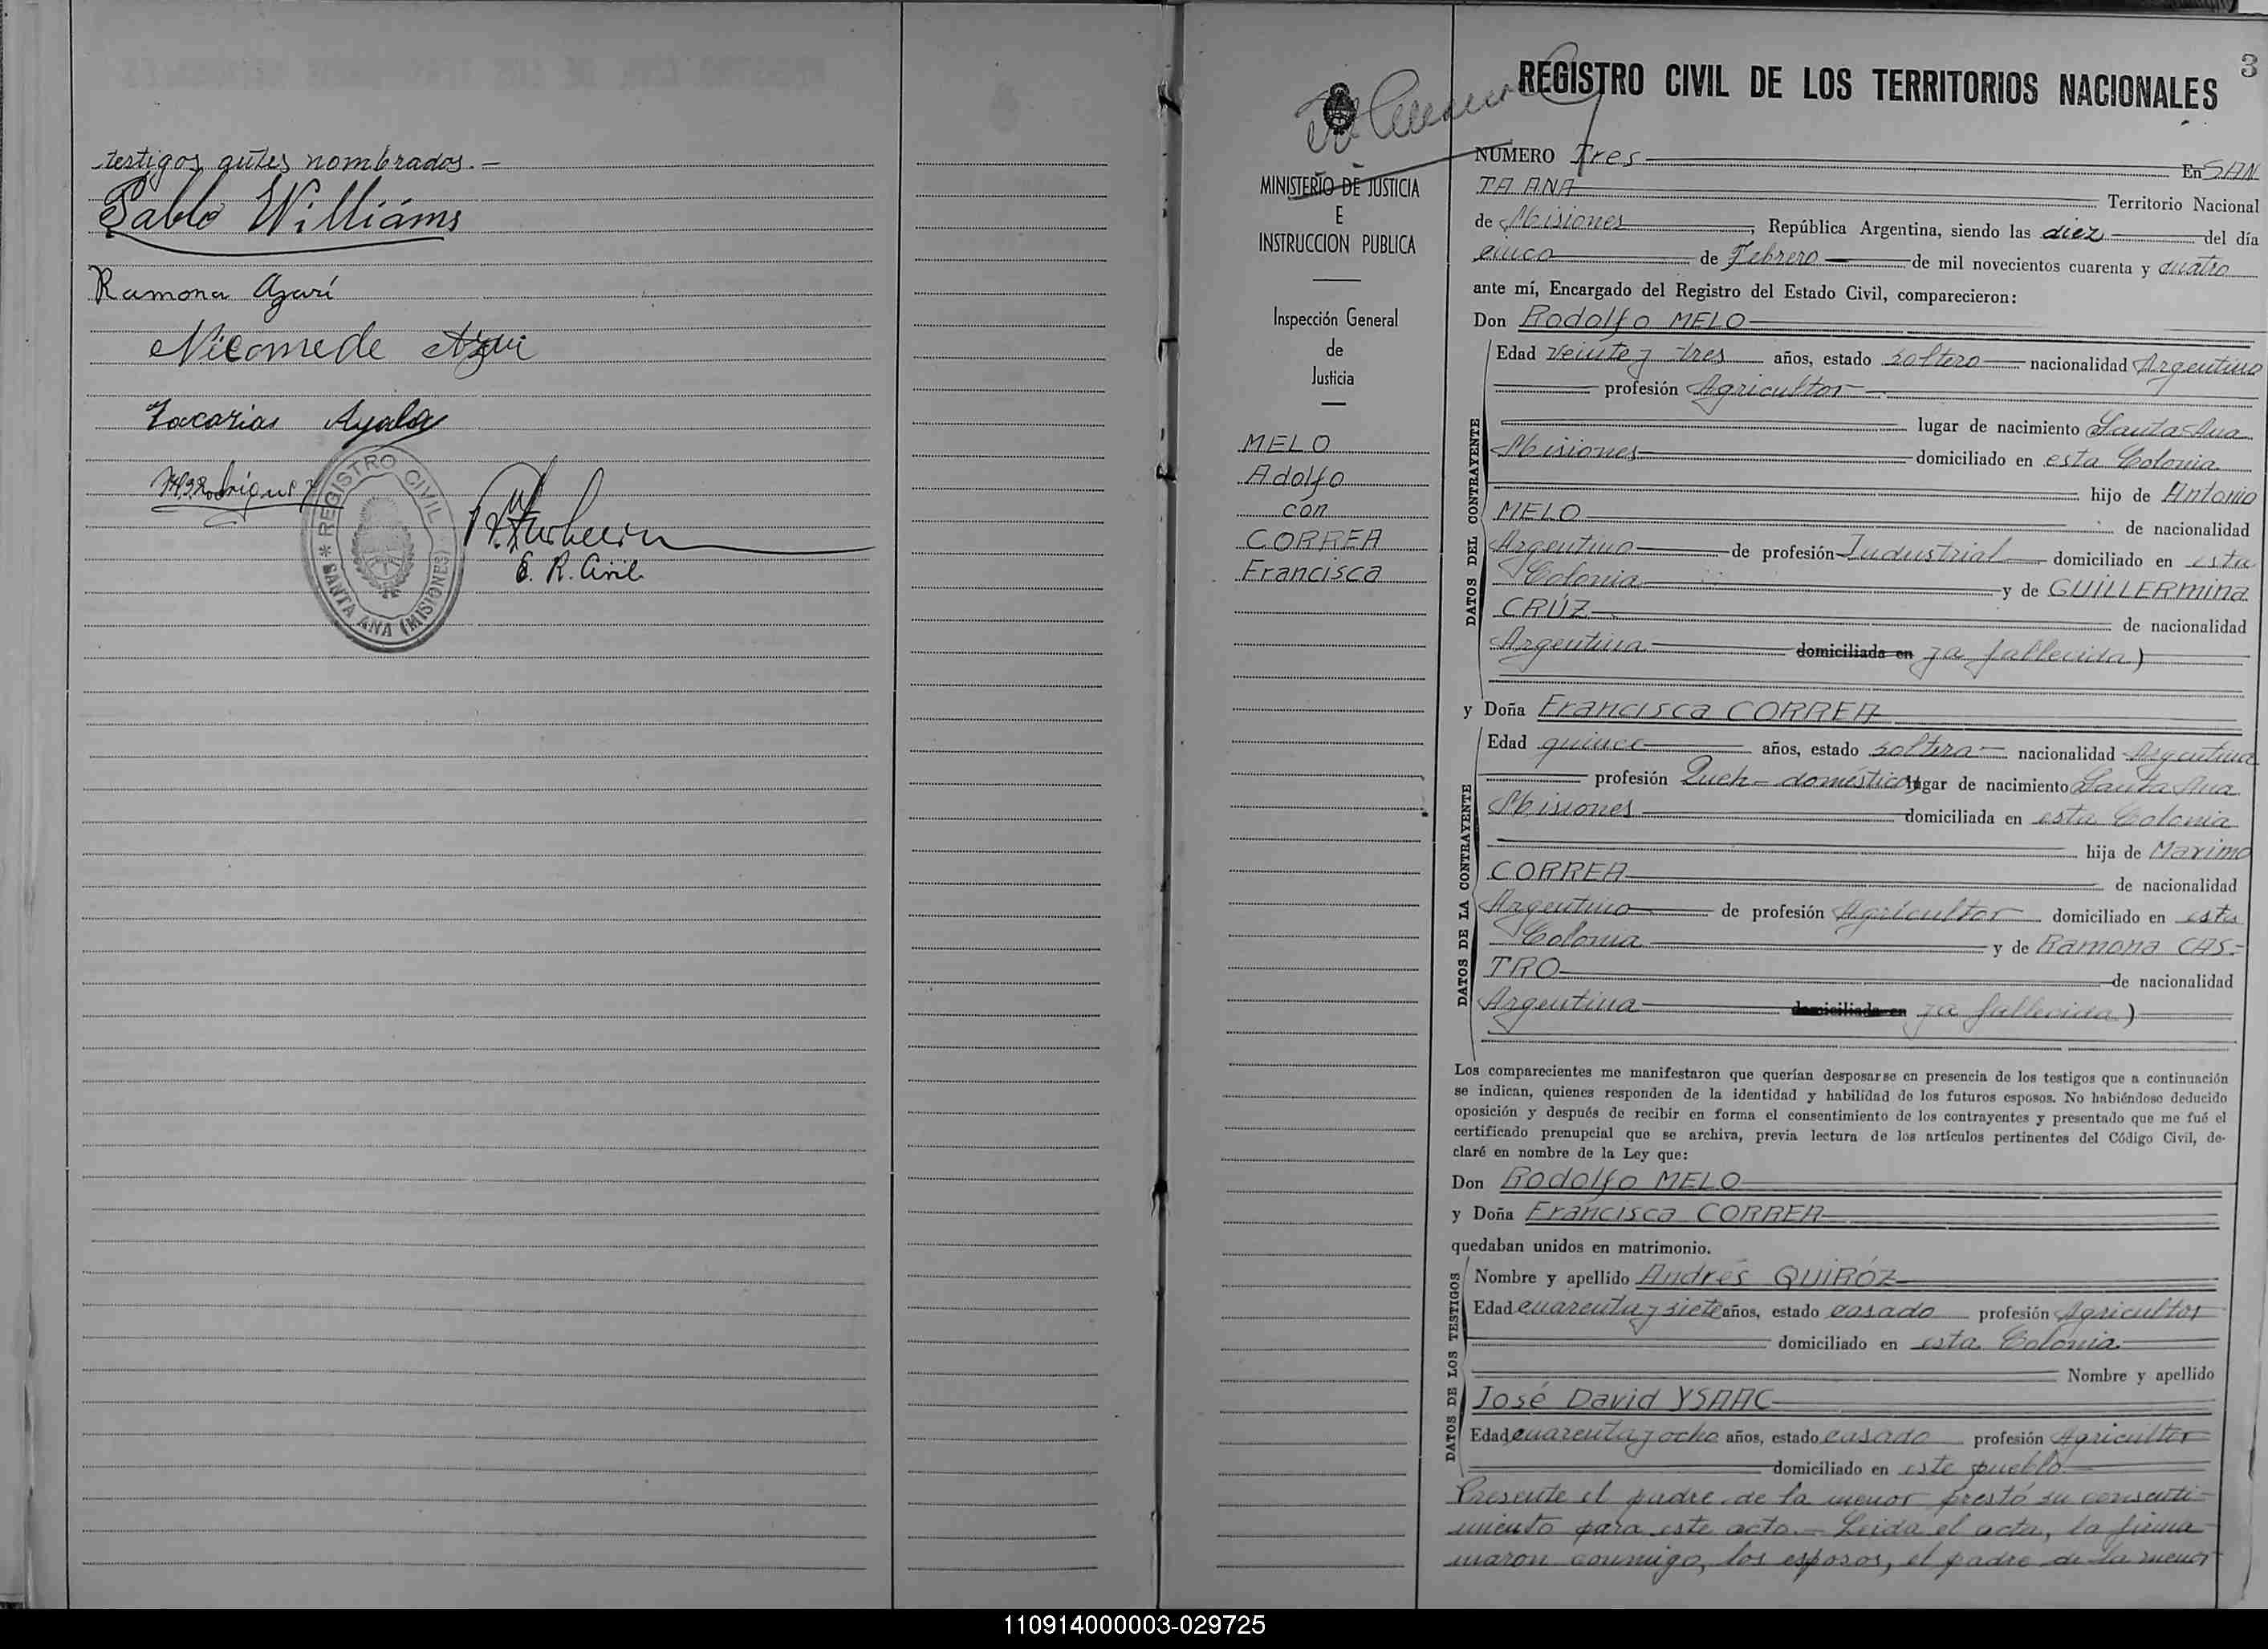 testigos antes nombrados.-
Pablo Williáms
Ramona Azarí
Nicomede Azari
Zacarias Ayala
REGISTRO CIVIL
* SANTA ANA (MISIONES)
E. R. Civil
3
REGISTRO CIVIL DE LOS TERRITORIOS NACIONALES
MINISTERIO DE JUSTICIA
E
INSTRUCCION PUBLICA
Inspección General
de
Justicia
MELO
Adolfo
con
CORREA
Francisca
NÚMERO Tres En SAN
TA ANA Territorio Nacional
de Misiones, República Argentina, siendo las diez del día
cinco de Febrero de mil novecientos cuarenta y cuatro
ante mí, Encargado del Registro del Estado Civil, comparecieron:
Don Rodolfo MELO
DATOS DEL CONTRAYENTE
Edad Veinte y tres años, estado soltero nacionalidad Argentino
profesión Agricultor
lugar de nacimiento Santa Ana
Misiones domiciliado en esta Colonia
hijo de Antonio
MELO de nacionalidad
Argentino de profesión Industrial domiciliado en esta
Colonia y de GUILLERMINA
CRÚZ de nacionalidad
Argentina domiciliada en ya fallecida)
y Doña Francisca CORREA
DATOS DE LA CONTRAYENTE
Edad quince años, estado soltera nacionalidad Argentina
profesión Queh-domésticos lugar de nacimiento Santa Ana
Misiones domiciliada en esta Colonia
hija de Maximo
CORREA de nacionalidad
Argentino de profesión Agricultor domiciliado en esta
Colonia y de Ramona CAS-
TRO de nacionalidad
Argentina domiciliada en ya fallecida)
Los comparecientes me manifestaron que querían desposarse en presencia de los testigos que a continuación
se indican, quienes responden de la identidad y habilidad de los futuros esposos. No habiéndose deducido
oposición y después de recibir en forma el consentimiento de los contrayentes y presentado que me fué el
certificado prenupcial que se archiva, previa lectura de los artículos pertinentes del Código Civil, de-
claré en nombre de la Ley que:
Don Rodolfo MELO
y Doña Francisca CORREA
quedaban unidos en matrimonio.
DATOS DE LOS TESTIGOS
Nombre y apellido Andrés QUIRÓZ
Edad cuarenta y siete años, estado casado profesión Agricultor
domiciliado en esta Colonia
Nombre y apellido
José David YSAAC
Edad cuarenta y ocho años, estado casado profesión Agricultor
domiciliado en este pueblo
Presente el padre de la menor prestó su consenti-
miento para este acto.- Leida el acta, la firma-
maron conmigo, los esposos, el padre de la menor
110914000003-029725